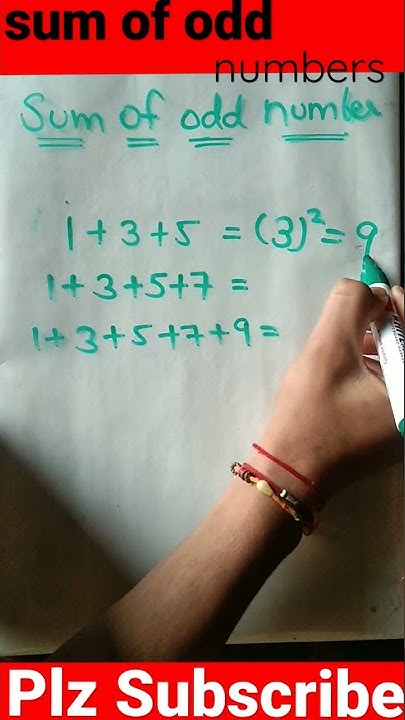 sum of odd
numbers
Sum of odd number
1+3+5 = (3)² = 9
1+3+5+7 =
1+3+5+7+9=
Plz Subscribe